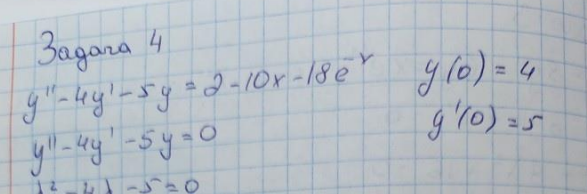 Задача 4
y'' - 4y' - 5y = 2 - 10x - 18e⁻ˣ y(0) = 4
y'' - 4y' - 5y = 0 y'(0) = 5
λ² - 4λ - 5 = 0